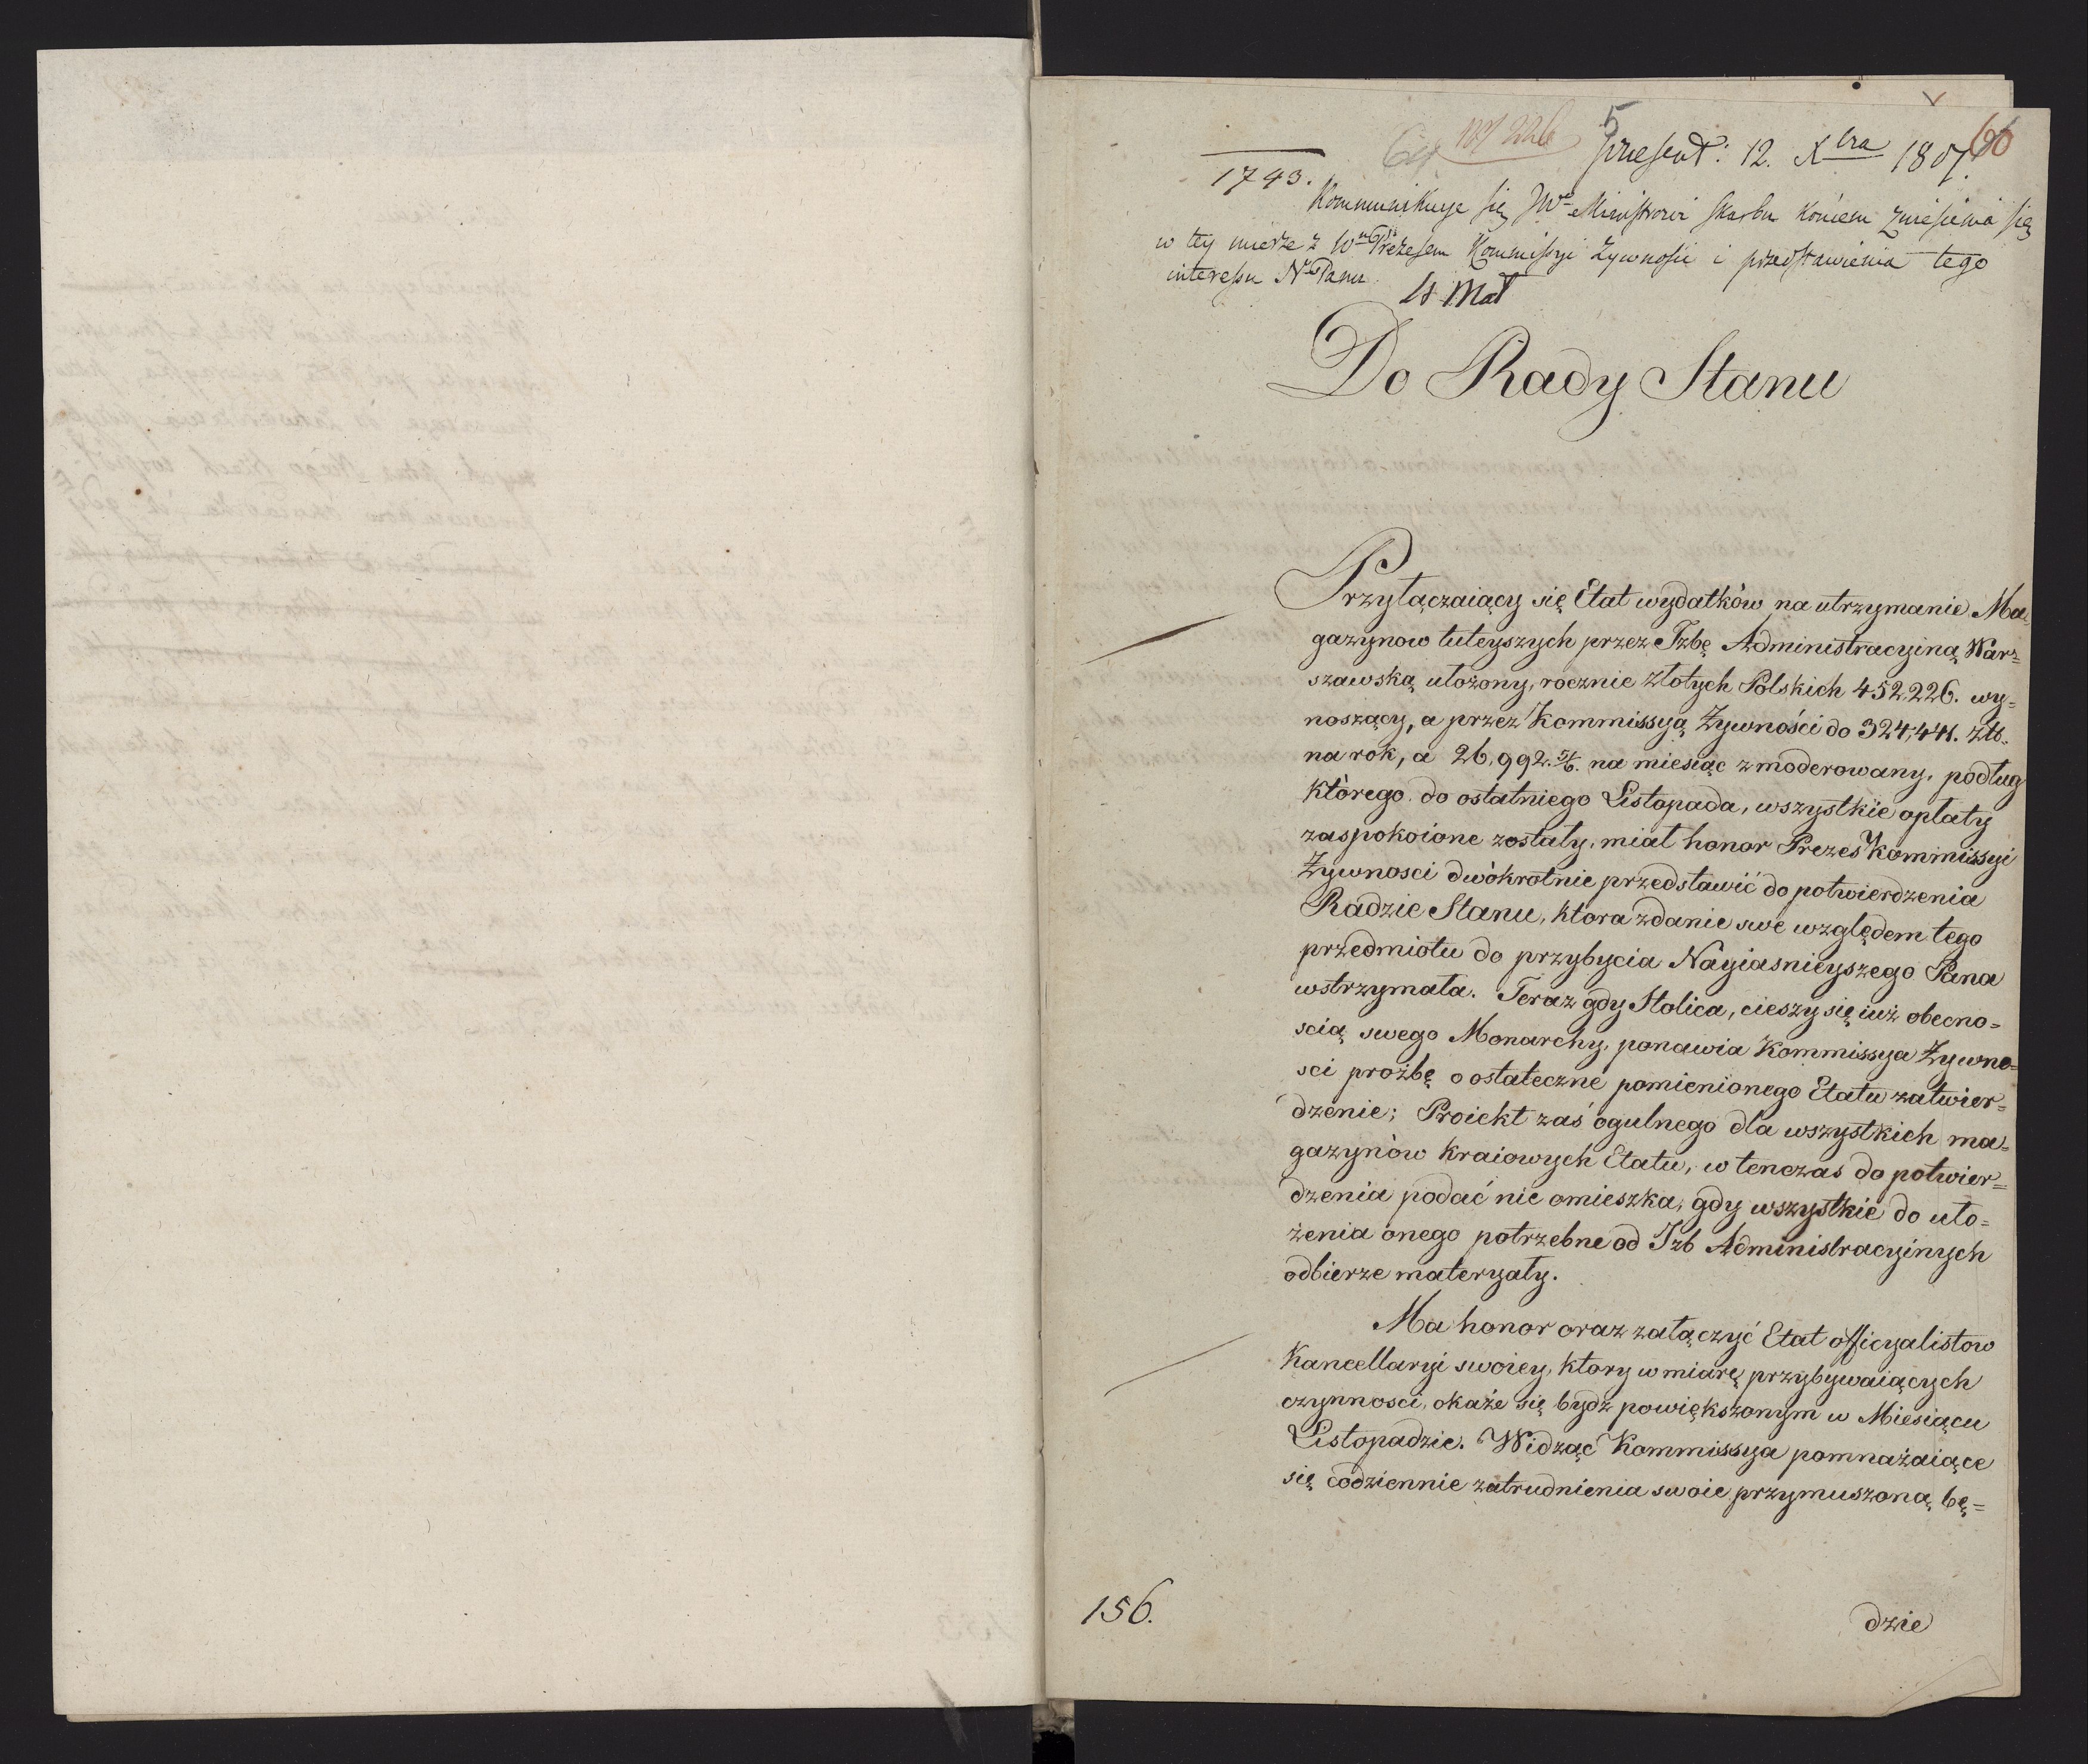 5
60
praesent: 12. Xbra 1807.
1743.
Kommunikuye się JWu Ministrowi Skarbu końcem zniesienia się
w tey mierze z Wm Prezesem Kommissyi Żywności i przedstawienia tego
interessu N. Panu
Do Rady Stanu
Przyłączaiący się Etat wydatków na utrzymanie Ma
gazynow tuteyszych przez Izbę Administracyiną War=
szawską ułożony, rocznie złotych Polskich 452,226. wy=
noszący, a przez Kommissyą Żywności do 324,441. złt.
na rok, a 26,992. 5/6. na miesiąc zmoderowany, podług
którego do ostatniego Listopada, wszystkie opłaty
zaspokoione zostały, miał honor Prezes Kommissyi
Żywnosci dwókrotnie przedstawić do potwierdzenia
Radzie Stanu, ktora zdanie swe względem tego
przedmiotu do przybycia Nayiasnieyszego Pana
wstrzymała. Teraz gdy Stolica, cieszy się iuż obecno=
scią swego Monarchy, ponawia Kommissya Żywno=
sci proźbę o ostateczne pomienionego Etatu zatwier=
dzenie; Proiekt zaś ogulnego dla wszystkich ma=
gazynów kraiowych Etatu, w tenczas do potwier=
dzenia podać nie omieszka, gdy wszystkie do uło=
żenia onego potrzebne od Izb Administracyinych
odbierze materyały.
Ma honor oraz załączyć Etat officyalistow
Kancellaryi swoiey, ktory w miarę przybywaiących
czynnosci, okaże się bydz powiększonym w Miesiącu
Listopadzie. Widząc Kommissya pomnażaiące
się codziennie zatrudnienia swoie przymuszoną bę=
156.
dzie